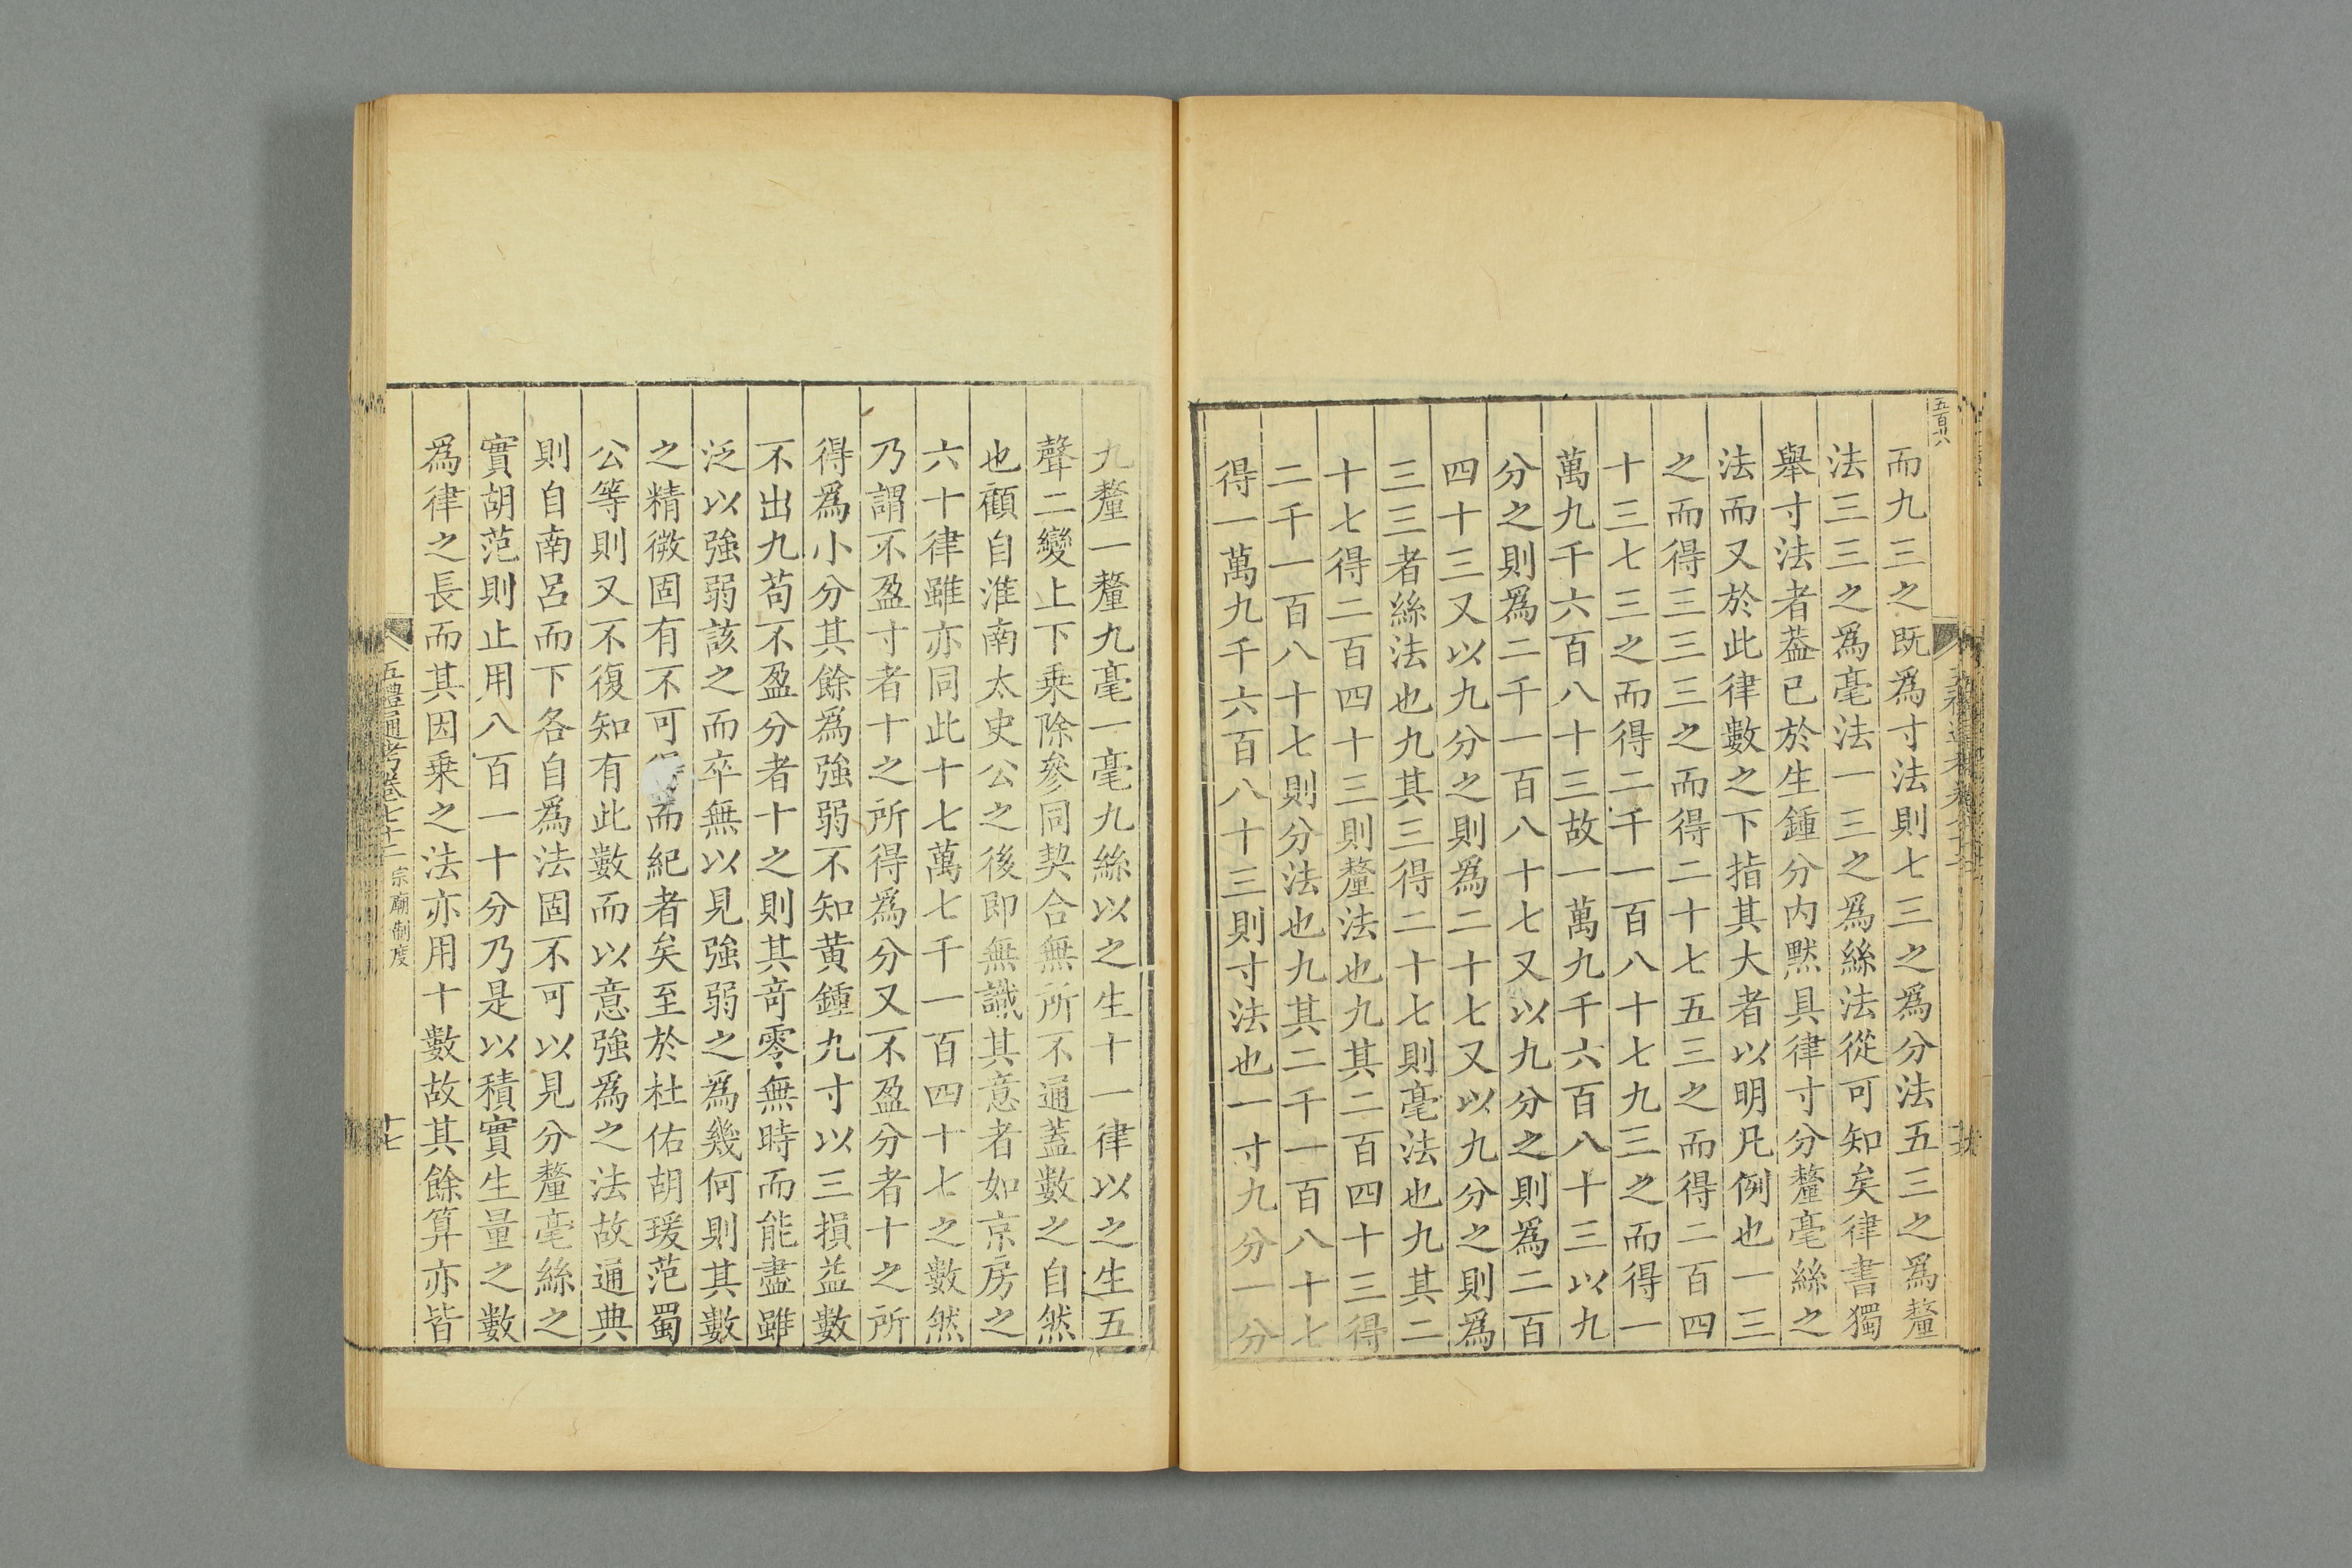 五百八
而九三之既爲寸法則七三之爲分法五三之爲釐
法三三之爲毫法一三之爲絲法從可知矣律書獨
舉寸法者葢已於生鍾分內黙具律寸分釐毫絲之
法而又於此律數之下指其大者以明凡例也一三
之而得三三三之而得二十七五三之而得二百四
十三七三之而得二千一百八十七九三之而得一
萬九千六百八十三故一萬九千六百八十三以九
分之則爲二千一百八十七又以九分之則爲二百
四十三又以九分之則爲二十七又以九分之則爲
三三者絲法也九其三得二十七則毫法也九其二
十七得二百四十三則釐法也九其二百四十三得
二千一百八十七則分法也九其二千一百八十七
得一萬九千六百八十三則寸法也一寸九分一分
九釐一釐九毫一毫九絲以之生十一律以之生五
聲二變上下乗除參同契合無所不通蓋數之自然
也顧自淮南太史公之後即無識其意者如京房之
六十律雖亦同此十七萬七千一百四十七之數然
乃謂不盈寸者十之所得爲分又不盈分者十之所
得爲小分其餘爲強弱不知黄鍾九寸以三損益數
不出九苟不盈分者十之則其竒零無時而能盡雖
泛以強弱該之而卒無以見強弱之爲幾何則其數
之精微固有不可而紀者矣至於杜佑胡瑗范蜀
公等則又不復知有此數而以意強爲之法故通典
則自南呂而下各自爲法固不可以見分釐毫絲之
實胡范則止用八百一十分乃是以積實生量之數
爲律之長而其因乗之法亦用十數故其餘算亦皆
五禮通考卷七十二 宗廟制度
十七